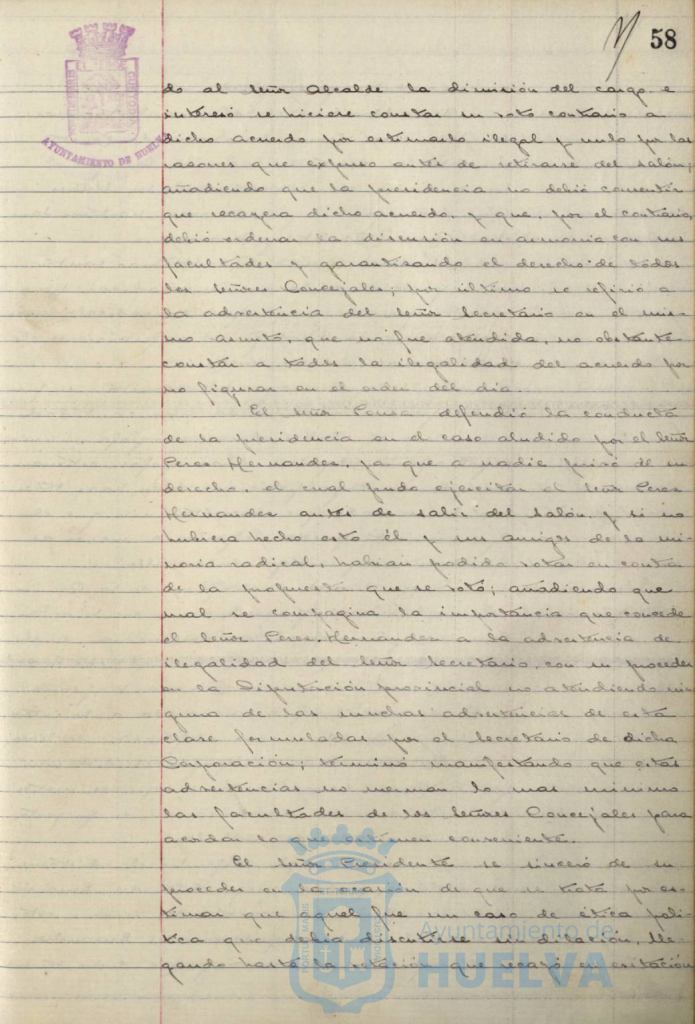 58
AYUNTAMIENTO DE HUELVA
do al Señor Alcalde la dimisión del cargo e
interesó se hiciese constar su voto contrario a
dicho acuerdo por estimarlo ilegal y nulo por las
razones que expuso antes de retirarse del salón;
añadiendo que la presidencia no debió consentir
que recayera dicho acuerdo, y que, por el contrario,
debió ordenar la discusión en armonia con sus
facultades y garantizando el derecho de todos
los Señores Concejales; por último se refirió a
la advertencia del Señor Secretario en el mis-
mo asunto, que no fue atendida, no obstante
constar a todos la ilegalidad del acuerdo por
no figurar en el orden del dia.
El Señor Ponsa defendió la conducta
de la presidencia en el caso aludido por el Señor
Perez Hernandez, ya que a nadie privó de su
derecho, el cual pudo ejercitar el Señor Perez
Hernandez antes de salir del salón, y si no
hubiera hecho esto él y sus amigos de la mi-
noria radical, habrian podido votar en contra
de la propuesta que se votó; añadiendo que
mal se compagina la importancia que concede
el Señor Perez Hernandez a la advertencia de
ilegalidad del Señor Secretario, con su proceder
en la Diputación provincial no atendiendo nin
guna de las muchas advertencias de esta
clase formuladas por el Secretario de dicha
Corporación; terminó manifestando que estas
advertencias no merman lo mas minimo
las facultades de los Señores Concejales para
acordar lo que estimen conveniente.
El Señor Presidente se sinceró de su
proceder en la ocasión de que se trata por es-
timar que aquel fue un caso de ética poli-
tica que debia discutirse sin dilación, lle-
gando hasta la votación que recayó en evitación
Ayuntamiento de
HUELVA